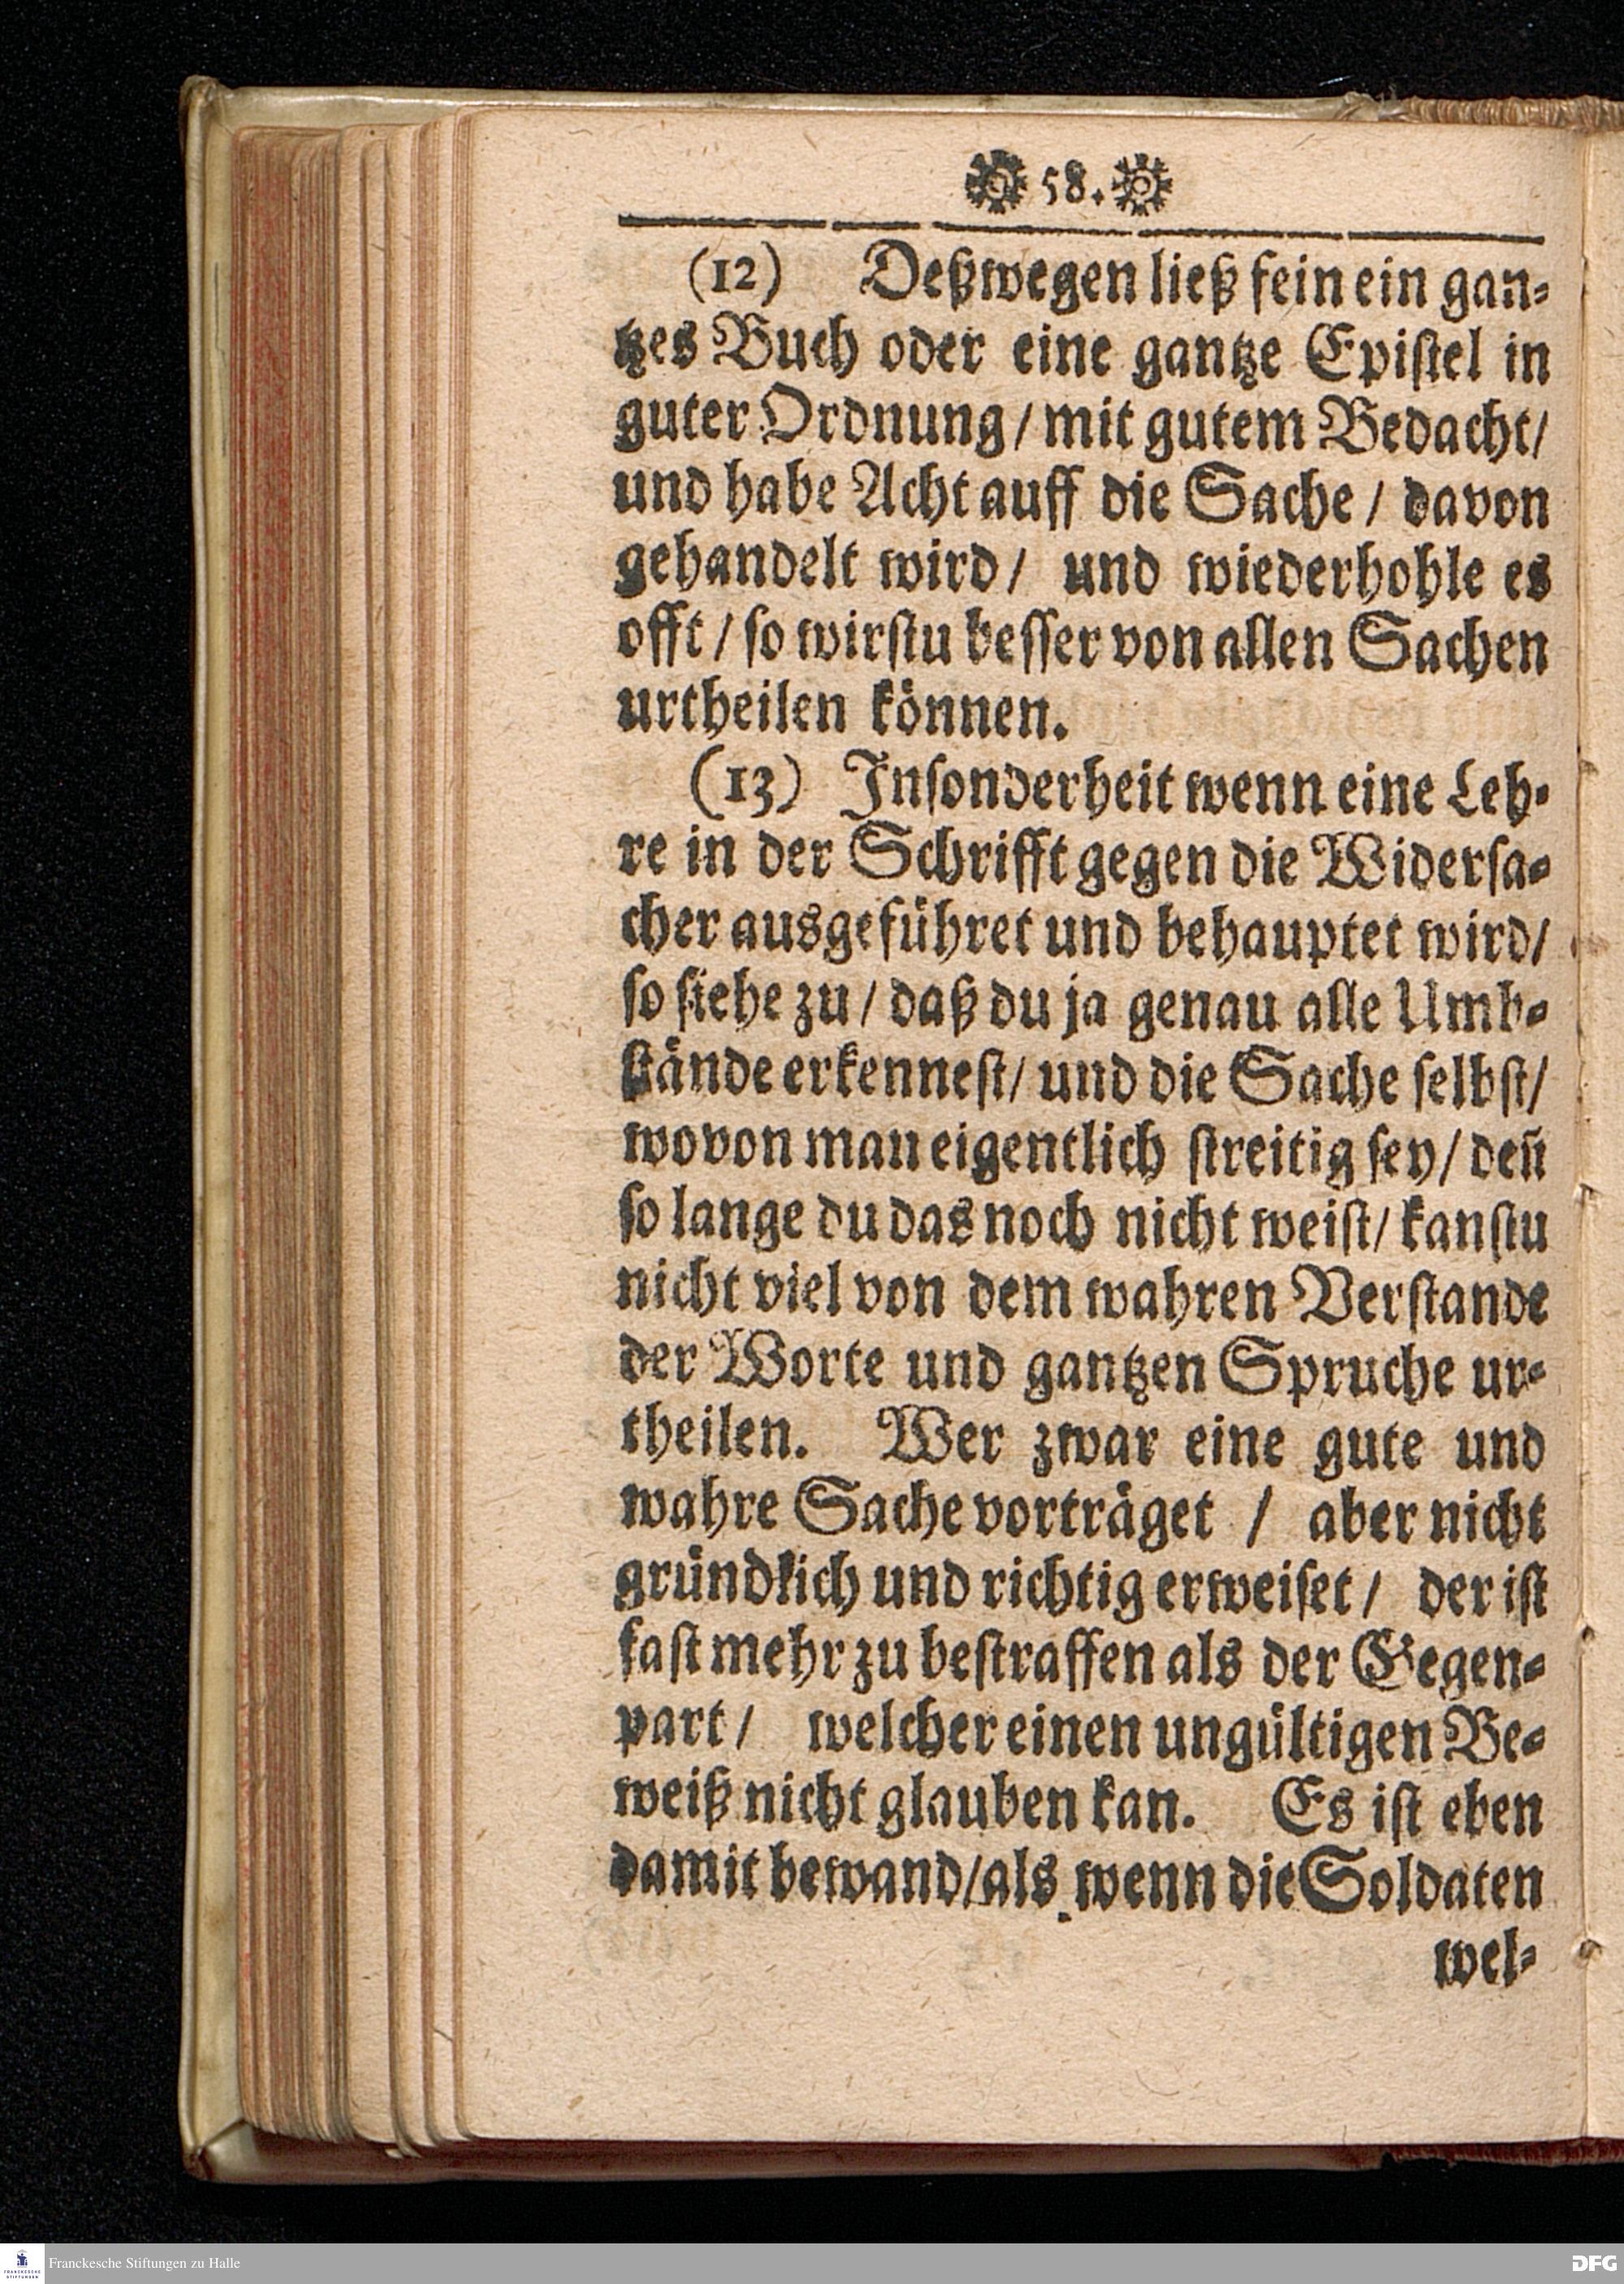 58.
(12) Deßwegen ließ fein ein gan-
tzes Buch oder eine gantze Epiſtel in
guter Ordnung / mit gutem Bedacht /
und habe Acht auff die Sache / davon
gehandelt wird / und wiederhohle es
offt / ſo wirſtu beſſer von allen Sachen
urtheilen können.
(13) Inſonderheit wenn eine Leh-
re in der Schrifft gegen die Widerſa-
cher ausgeführet und behauptet wird /
ſo ſiehe zu / daß du ja genau alle Umb-
ſtände erkenneſt / und die Sache ſelbſt /
wovon man eigentlich ſtreitig ſey / deñ
ſo lange du das noch nicht weiſt / kanſtu
nicht viel von dem wahren Verſtande
der Worte und gantzen Spruche ur-
theilen. Wer zwar eine gute und
wahre Sache vorträget / aber nicht
gründkich und richtig erweiſet / der iſt
faſt mehr zu beſtraffen als der Gegen-
part / welcher einen ungültigen Be-
weiß nicht glauben kan. Es iſt eben
damit bewand / als wenn die Soldaten
wel-
Franckesche Stiftungen zu Halle
DFG